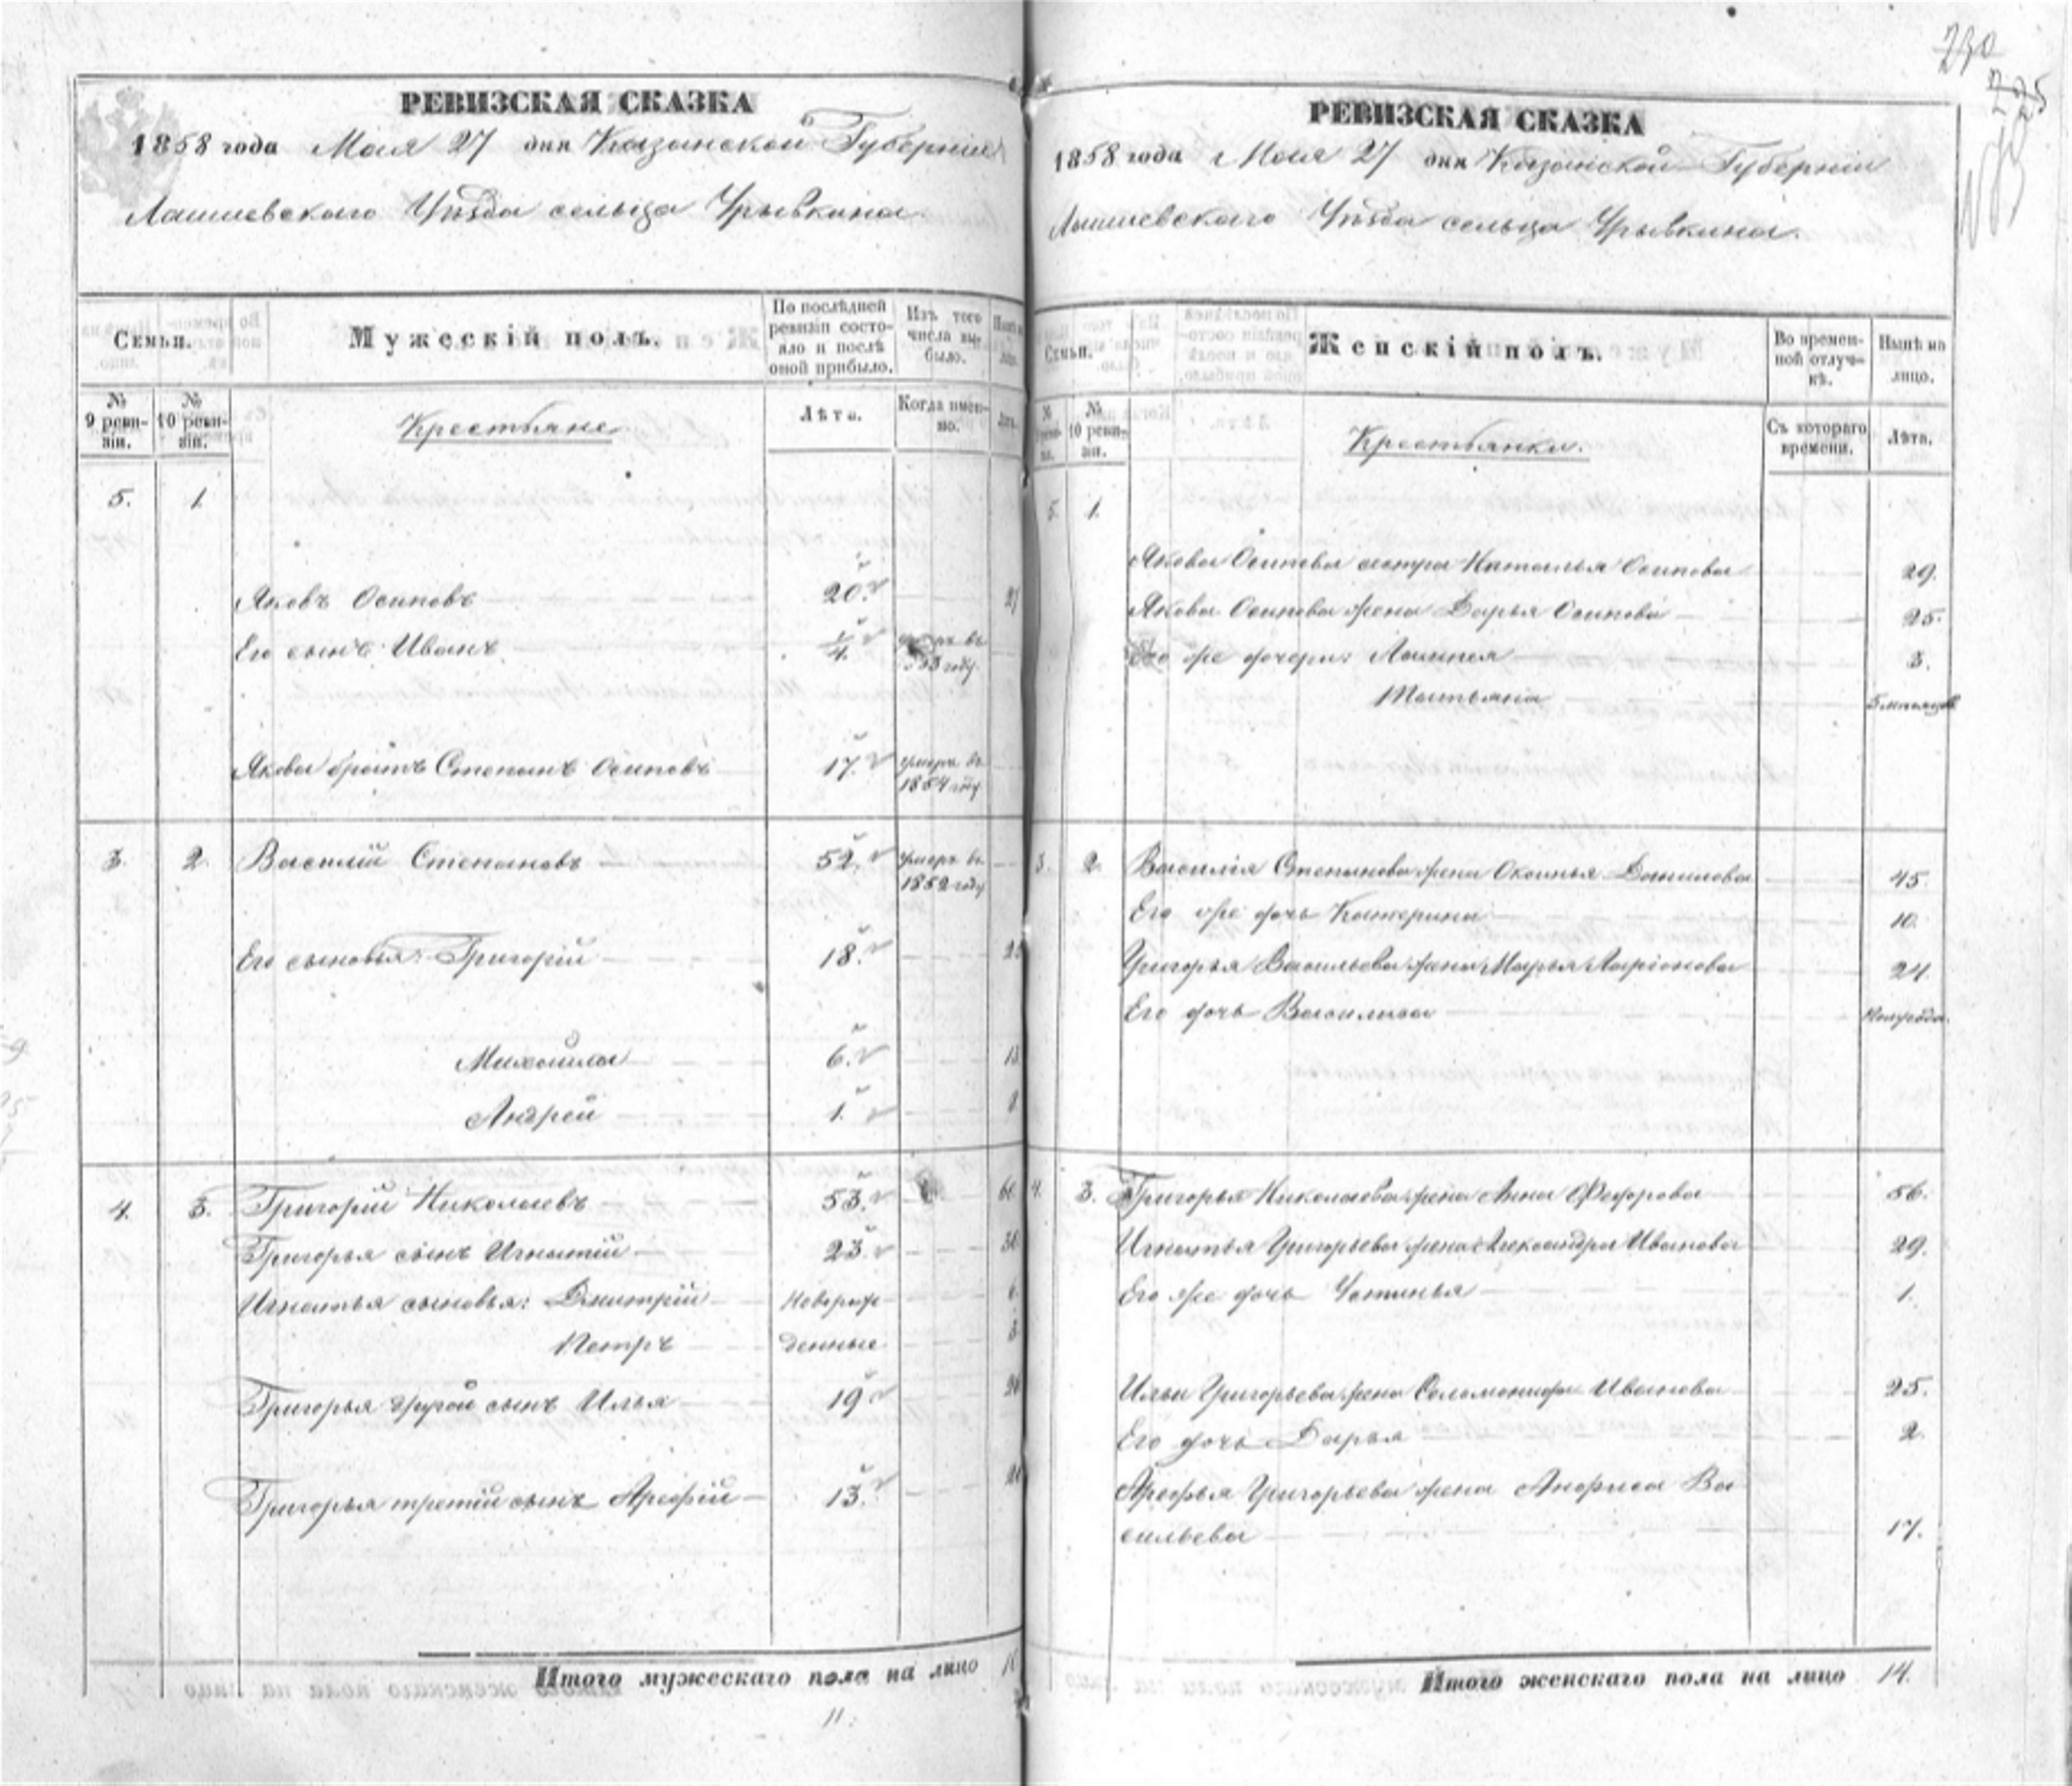 РЕВИЗСКАЯ СКАЗКА
1858 года Мая 27 дня Казанской Губерніи
Лаишевскаго Уѣзда сельца Урывкина.
Семьи.
Мужескій полъ.
По послѣдней ревизіи состояло и послѣ оной прибыло.
Изъ того числа выбыло.
№ 9 ревизіи.
№ 10 ревизіи.
Крестьяне
Лѣта.
Когда именно.
5. 1.
Яковъ Осиповъ 20. 27
Его сынъ Иванъ 1/4
Якова братъ Степанъ Осиповъ 17. умеръ въ 1854 году
3. 2. Василій Степановъ 52. умеръ въ 1852 году
Его сыновья: Григорій 18. 25
Михайла 6. 13
Андрей 1. 8
4. 3. Григорій Николаевъ 53. 60
Григорья сынъ Игнатій 23. 30
Игнатья сыновья: Дмитрій Новорож
Петръ денные 3
Григорья другой сынъ Илья 19
Григорья третій сынъ Арефій 13. 20
Итого мужескаго пола на лицо
11.
230
225
РЕВИЗСКАЯ СКАЗКА
1858 года Мая 27 дня Казанской Губерніи
Лаишевскаго Уѣзда сельца Урывкина.
Семьи.
Женскій полъ.
Во временной отлучкѣ.
Нынѣ на лицо.
№ 10 ревизіи.
Крестьянки.
Съ котораго времени.
Лѣта.
5. 1.
Якова Осипова сестра Наталья Осипова 29.
Якова Осипова жена Дарья Осипова 25.
Его же дочери: 3.
Татьяна 5 мѣсяцовъ
3. 2. Василія Степанова жена Аксинья Данилова 45.
Его же дочь Катерина 10.
Григорья Васильева жена Марья Ларіонова 24.
Его дочь Василиса Полгода.
4. 3. Григорья Николаева жена Анна Федорова 56.
Игнатья Григорьева жена Александра Иванова 29.
Его же дочь Устинья 1.
Ильи Григорьева жена Соломонида Иванова 25.
Его дочь Дарья 2
Арефья Григорьева жена Анфиса Ва
сильева 17.
Итого женскаго пола на лицо 14.